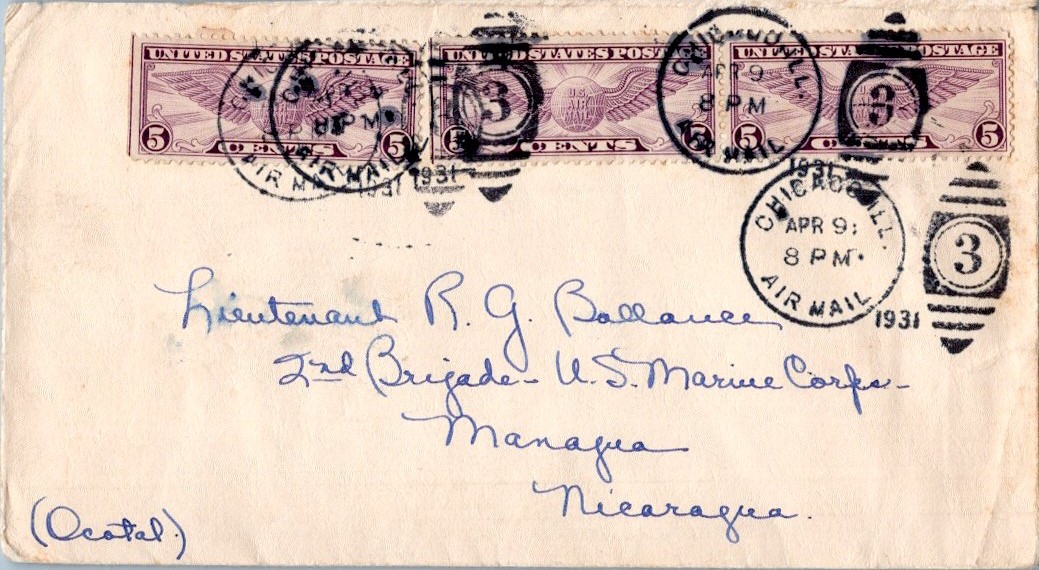 UNITED STATES POSTAGE UNITED STATES POSTAGE UNITED STATES POSTAGE
U.S. AIR MAIL
5 CENTS 5
5 CENTS
5 CENTS 5
8 PM
AIR MAIL
1931
1931
3
CHICAGO, ILL.
APR 9
8 PM
AIR MAIL
1931
3
CHICAGO, ILL.
APR 9
8 PM
AIR MAIL
1931
3
Lieutenant R. G. Ballance
2nd Brigade - U. S. Marine Corps -
Managua
Nicaragua.
(Ocotal.)